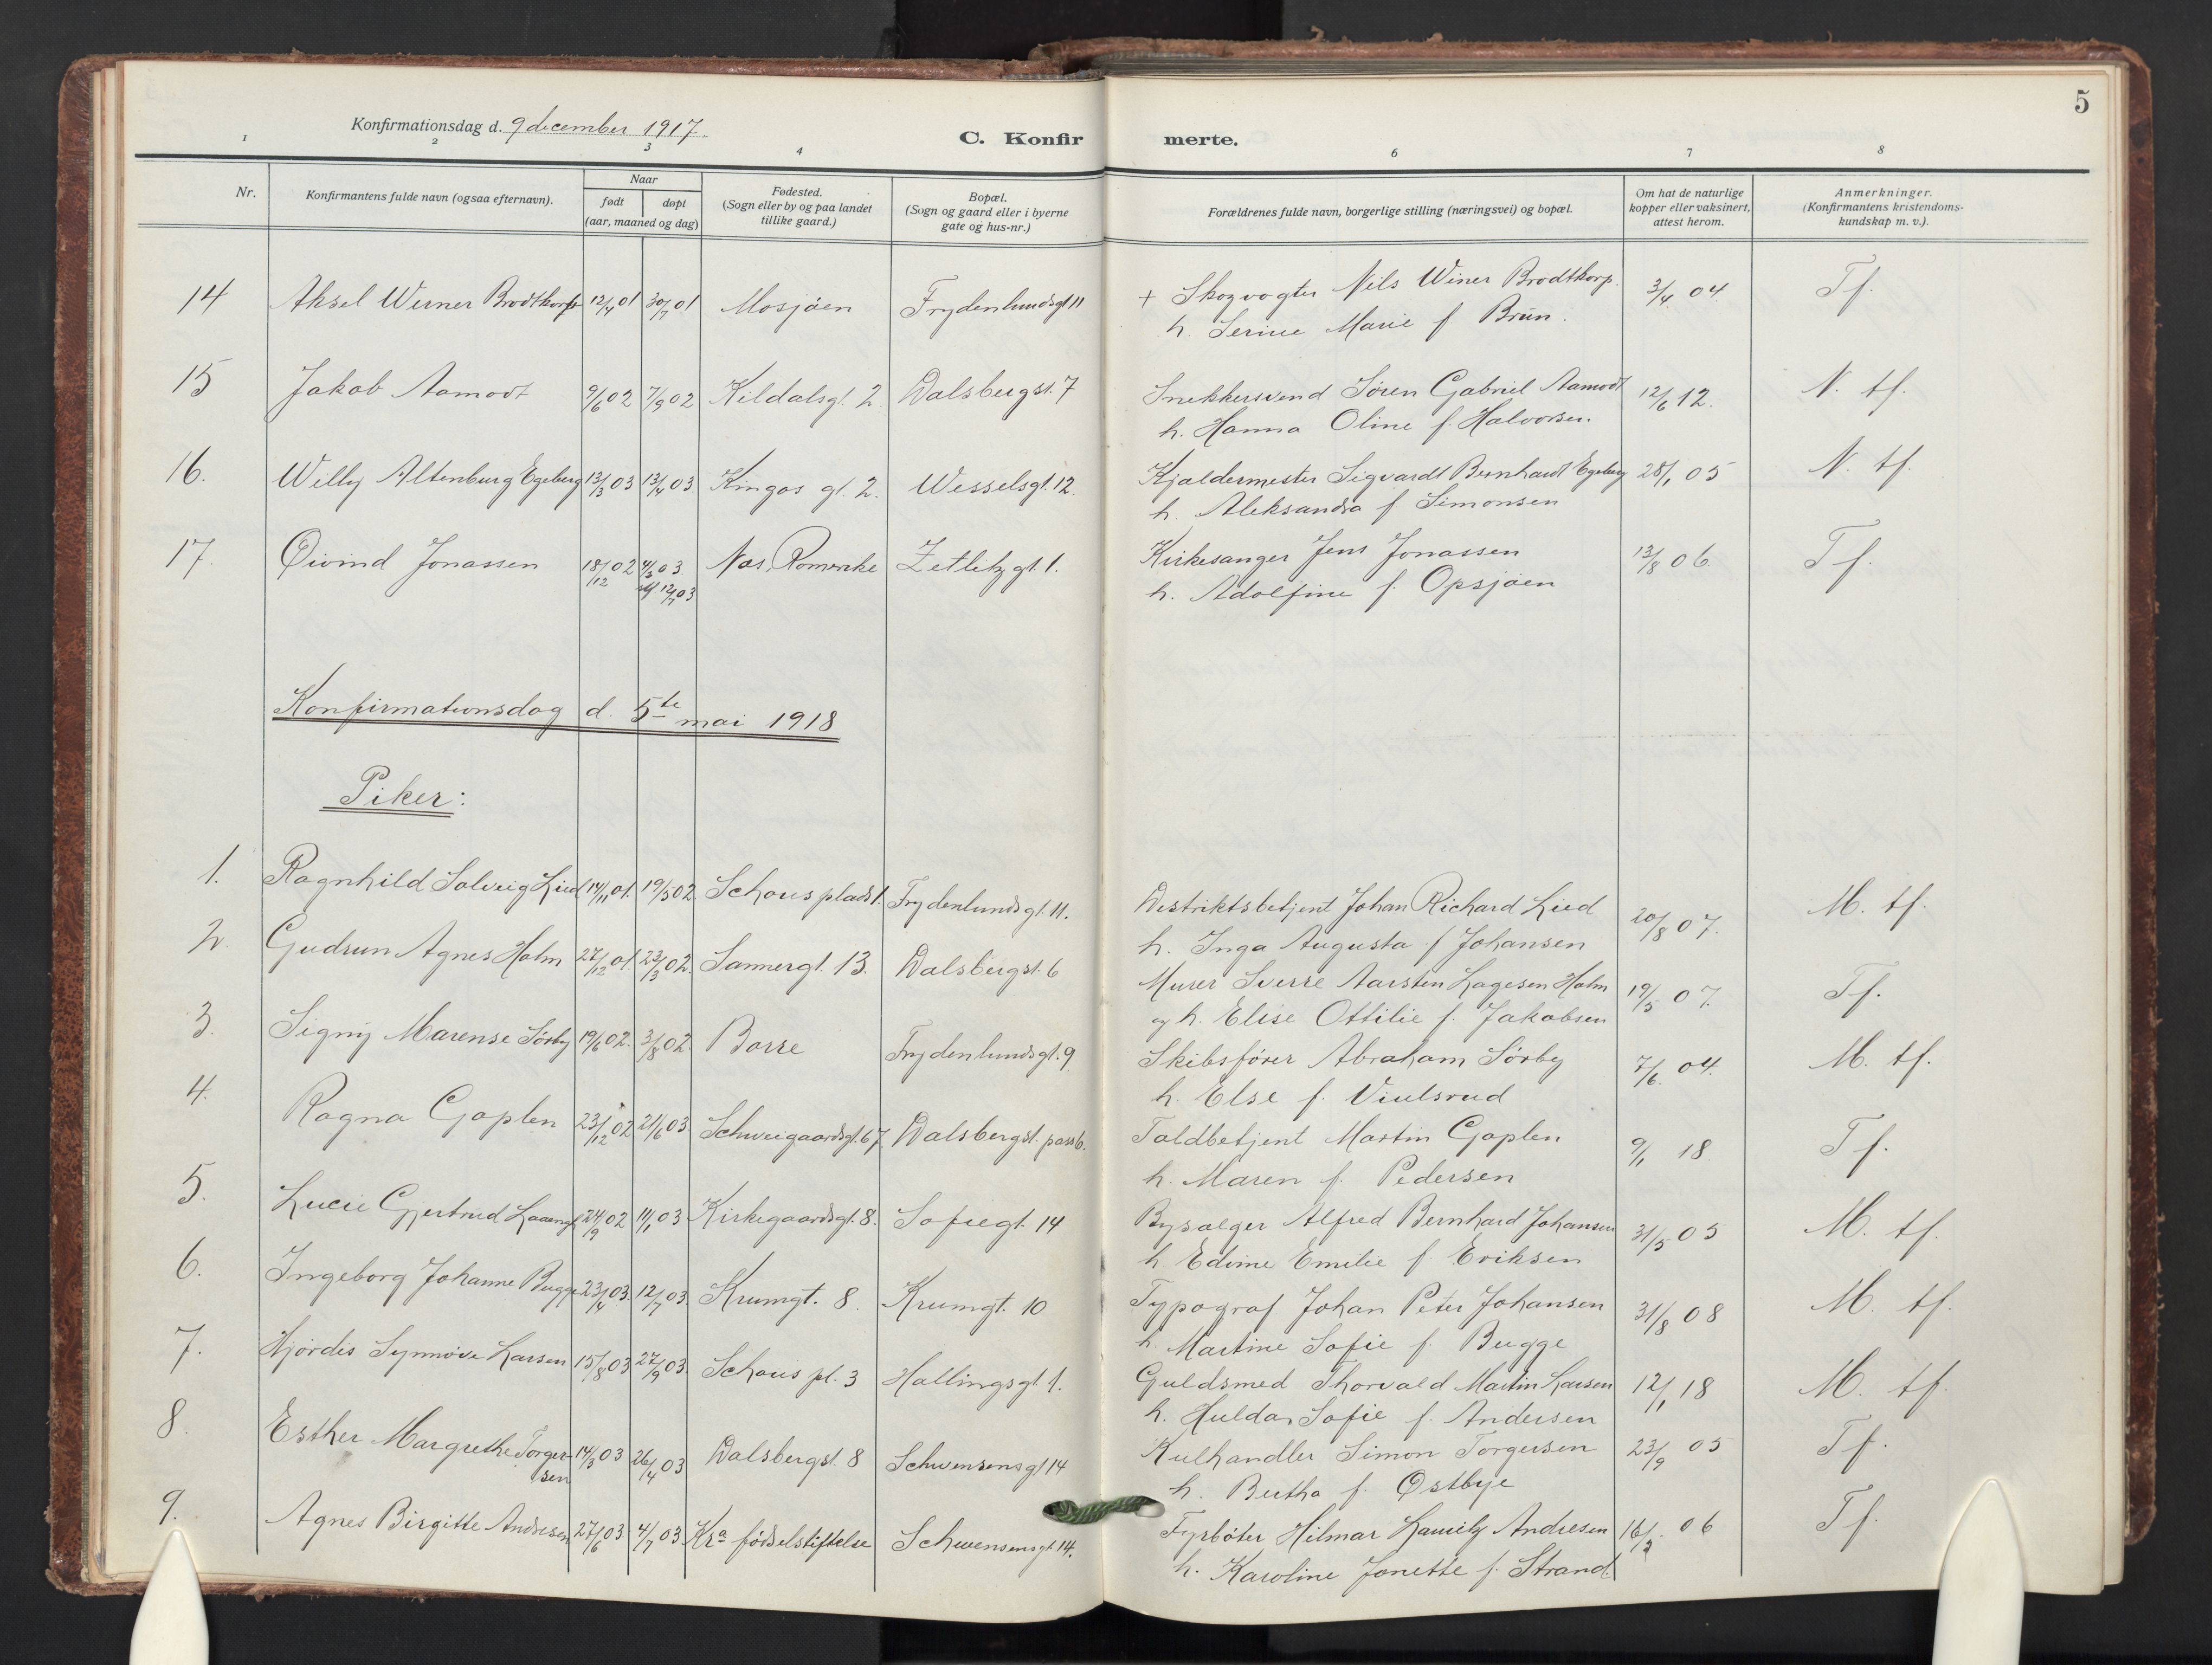 5
Konfirmationsdag d. 9 december 1917.
C. Konfirmerte.
1 2 3 4 6 7 8
Nr.
Konfirmantens fulde navn (ogsaa efternavn).
Naar
født døpt
(aar, maaned og dag)
Fødested.
(Sogn eller by og paa landet
tillike gaard.)
Bopæl.
(Sogn og gaard eller i byerne
gate og hus-nr.)
Forældrenes fulde navn, borgerlige stilling (næringsvei) og bopæl.
Om hat de naturlige
kopper eller vaksinert,
attest herom.
Anmerkninger.
(Konfirmantens kristendoms-
kundskap m. v.).
14 Aksel Werner Brodtkorp 12/4 01 30/7 01 Mosjøen Frydenlundsgt 11 + Skogvogter Nils Winer Brodtkorp. 3/4 04. Tf.
h. Serine Marie f Brün.
15 Jakob Aamodt 9/6 02 7/9 02 Kildalsgt. 2 Dalsbergst. 7 Snekkersvend Søren Gabriel Aamodt 12/6 12. N. tf.
h. Hanna Oline f. Halvorsen.
16. Willy Altenburg Egeberg 13/3 03 13/4 03 Kingos gt. 2. Wesselsgt. 12. Kjældermester Sigvardt Bernhardt Egeberg 28/1 05 N. tf.
h. Aleksandra f. Simonsen
17. Øivind Jonassen 18/12 02 4/3 03 Nes, Romerike Zetlitzgt. 1. Kirkesanger Jens Jonassen 13/8 06. Tf.
12/7 03 h. Adolfine f. Opsjøen
Konfirmationsdag d. 5te mai 1918
Piker:
1. Ragnhild Solveig Lied 14/11 01. 19/5 02. Schous plads 1. Frydenlundsgt. 11. Distriktsbetjent Johan Richard Lied 20/8 07. M. tf.
h. Inga Augusta f Johansen
2. Gudrun Agnes Holm 27/12 01. 23/3 02. Sannergt. 13. Dalsbergst. 6 Murer Sverre Aarsten Lagesen Holm 19/5 07. Tf.
og h. Elise Ottilie f. Jakobsen
3. Signy Marense Sørby 19/6 02. 3/8 02. Borre Frydenlundsgt. 9 Skibsfører Abraham Sørby 7/6. 04. M. tf.
h. Else f. Viulsrud
4. Ragna Gaplen 23/12 02 21/6 03. Schweigaardsgt. 67 Dalsbergst. pass 6. Toldbetjent Martin Gaplen 9/1 18. Tf.
h. Maren f. Pedersen
5. Lucie Gjertrud 24/9 02 11/1 03 Kirkegaardsgt. 8. Sofiegt. 14 Bysælger Alfred Bernhard Johansen 31/5 05 M. tf.
h Edine Emilie f Eriksen
6. Ingeborg Johanne Bugge 23/4 03. 12/7 03. Krumgt. 8. Krumgt. 10 Typograf Johan Peter Johansen 31/8 08 M. tf.
h. Martine Sofie f. Bugge
7. Hjørdis Synnøve Larsen 15/8 03 27/9 03. Schous pl. 3 Hallingsgt. 1. Guldsmed Thorvald Martin Larsen 12/1 18 M. tf.
h. Hulda Sofie f. Andersen
8. Esther Margrethe Torger- 14/3 03 26/4 03 Dalsbergst. 8 Schwensensgt 14 Kulhandler Simon Torgersen 23/9 05 Tf.
sen h. Bertha f. Østbye
9. Agnes Birgitte Andresen 27/6 03 4/7 03 Kra fødselstiftelse Schwensensgt. 14. Fyrbøter Hilmar Andresen 16/2. 06 Tf.
h. Karoline Jonette f. Strand.